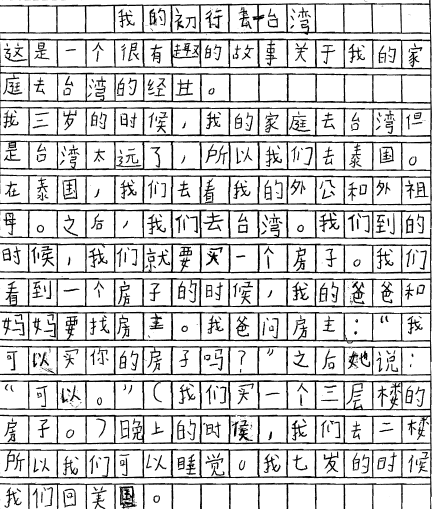 我的初行去台湾
这是一个很有趣的故事关于我的家
庭去台湾的经世。
我三岁的时候，我的家庭去台湾但
是台湾太远了，所以我们去泰国。
在泰国，我们去看我的外公和外祖
母。之后，我们去台湾。我们到的
时候，我们就要买一个房子。我们
看到一个房子的时候，我的爸爸和
妈妈要找房主。我爸问房主：“我
可以买你的房子吗？”之后她说：
“可以。”（我们买一个三层楼的
房子。）晚上的时候，我们去二楼
所以我们可以睡觉。我七岁的时候
我们回美国。